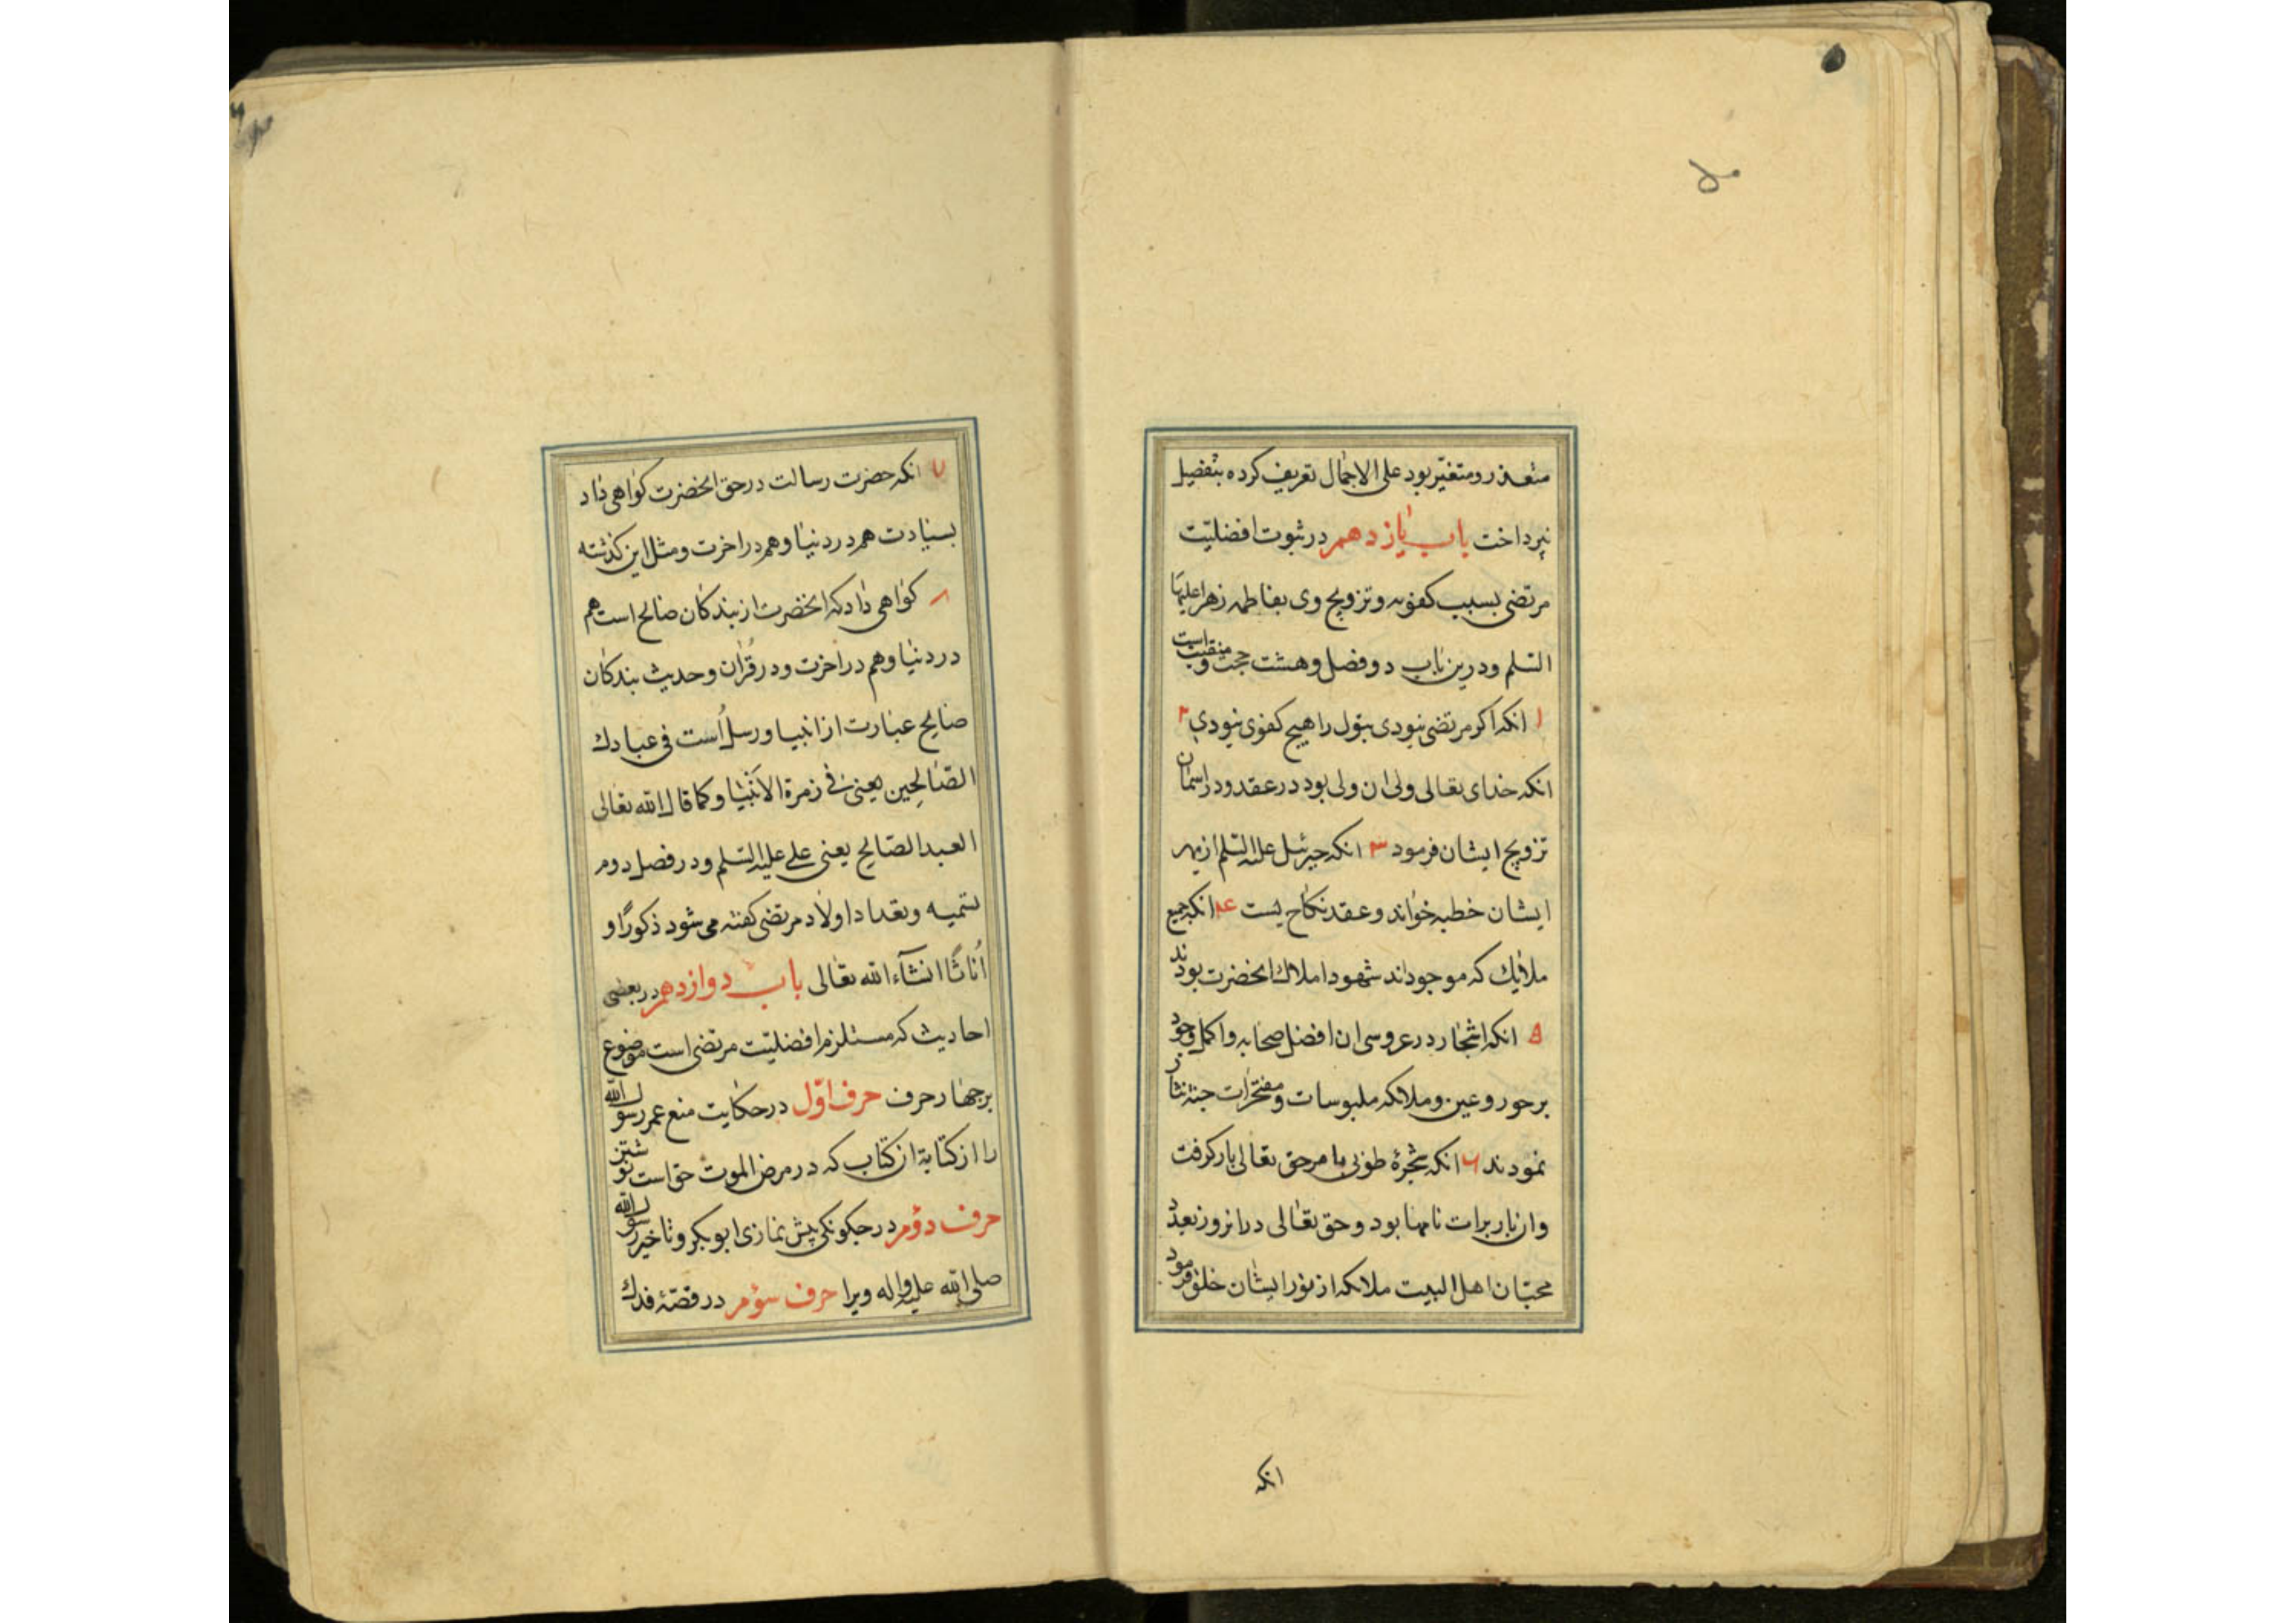 متعذر و متغیّر بود علی الاجمال تعریف کرده بتفصیل
نپرداخت باب یازدهم در ثبوت افضلیّت
مرتضی بسبب کفویه و تزویج وی بفاطمه زهرا علیها
السّلم و درین باب دو فصل و هشت حجت و منقبت است
۱ انکه اکر مرتضی نبودی بتول را هیچ کفوی نبودی ۲
انکه خدای تعالی ولی ان ولی بود در عقد و در اسمان
تزویج ایشان فرمود ۳ انکه جبرئیل علیه السّلم از بهر
ایشان خطبه خواند و عقد نکاح بست ۴ انکه جمیع
ملایک که موجوداند شهود املاک انحضرت بودند
۵ انکه اشجار در عروسی ان افضل صحابه و اکمل وجود
بر حور و عین و ملائکه ملبوسات و مفتخرات جنة نثار
نمودند ۶ انکه شجرهٔ طوبی بامر حق تعالی بار کرفت
وان بار برات نامها بود و حق تعالی دران روز بعدد
محبّان اهل البیت ملائکه از نور ایشان خلق فرمود
انکه
۷ انکه حضرت رسالت در حق انحضرت کواهی داد
بسیادت هم در دنیا و هم در اخرت و مثل این کذشته
۸ کواهی داد که انحضرت از بندکان صالح است هم
در دنیا و هم در اخرت و در قران و حدیث بندکان
صالح عبارت از انبیا و رسل است فی عبادك
الصّالحین یعنی فی زمرة الانبیا و کما قال الله تعالی
العبد الصّالح یعنی علی علیه السّلم و در فصل دوم
تسمیه و تعداد اولاد مرتضی کفته می شود ذکورًا و
اُناثًا انشآء الله تعالی باب دوازدهم در بعضی
احادیث که مستلزم افضلیّت مرتضی است موضوع
برجهار حرف حرف اوّل در حکایت منع عمر رسول الله
را از کتابة ان کتاب که در مرض الموت حق است نوشتن
حرف دوم در جکونکی پیش نمازی ابو بکر و تاخیر رسول الله
صلی الله علیه واله ویرا حرف سوم در قصّهٔ فدك